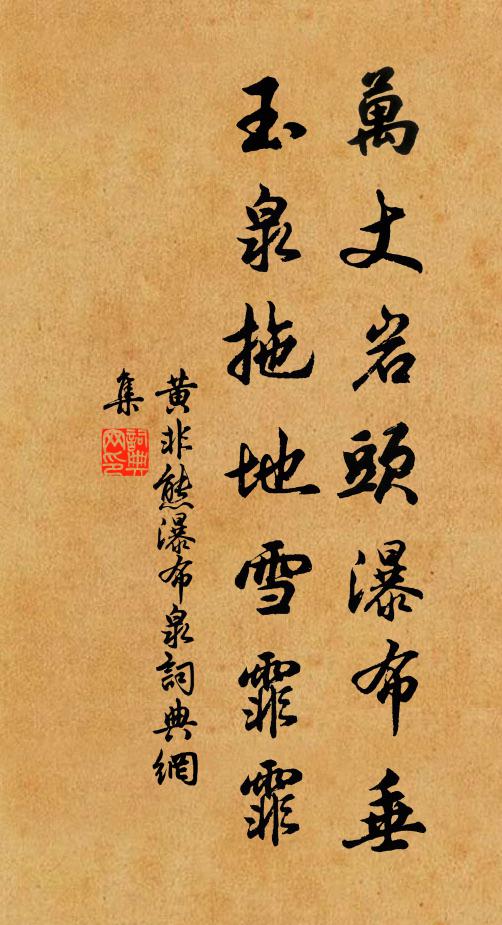 萬丈岩頭瀑布垂
玉泉拖地雪霏霏
黄非熊瀑布泉詞典網
集
詞典
网印